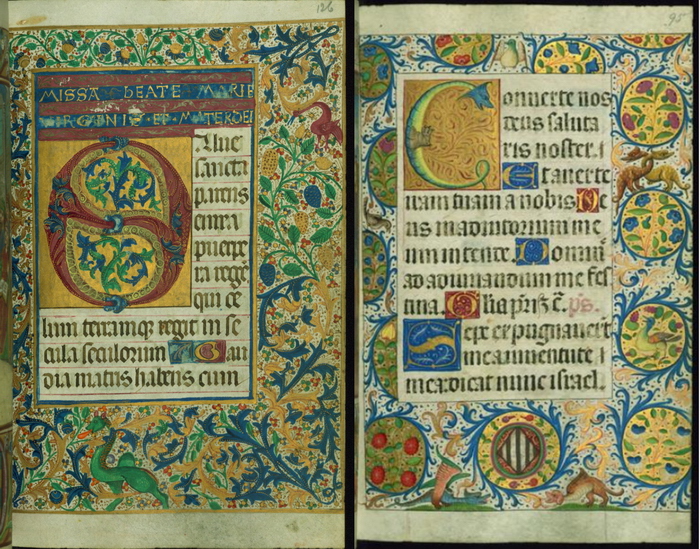 126
MISSA BEATE MARIE
VIRGINIS · ET · MATER DEI
Salue
sancta
parens
enixa
puerpe
ra regē
qui ce
lum terramq; regit in se
cula seculorum Gau
dia matris habens cum
95
Conuerte nos
deus saluta
ris noster.
Et auerte
iram tuam a nobis De
us in adiutorium me
um intende. Domīe
ad adiuuandum me fes
tina. ps.
Sepe expugnauerūt
me a iuuentute
mea dicat nunc israel.